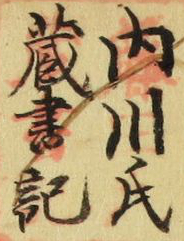 内川氏
蔵書記